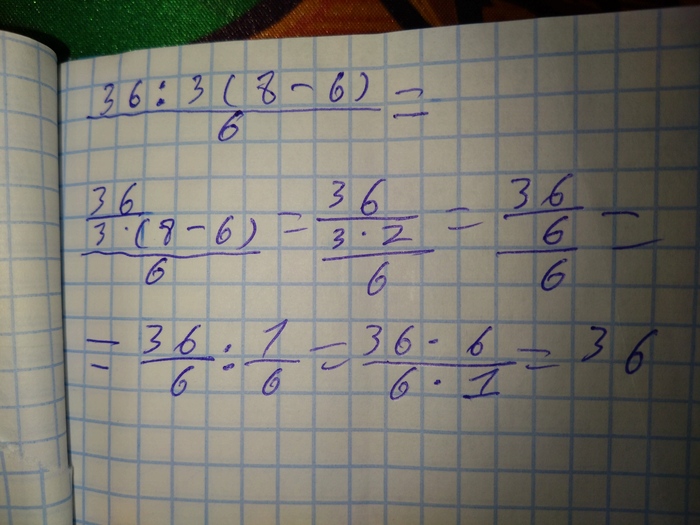 36 : 3 ( 8 - 6 ) / 6 =
36 / 3 · ( 8 - 6 ) / 6 = 36 / 3 · 2 / 6 = 36 / 6 / 6 =
= 36 / 6 : 1 / 6 = 36 · 6 / 6 · 1 = 36